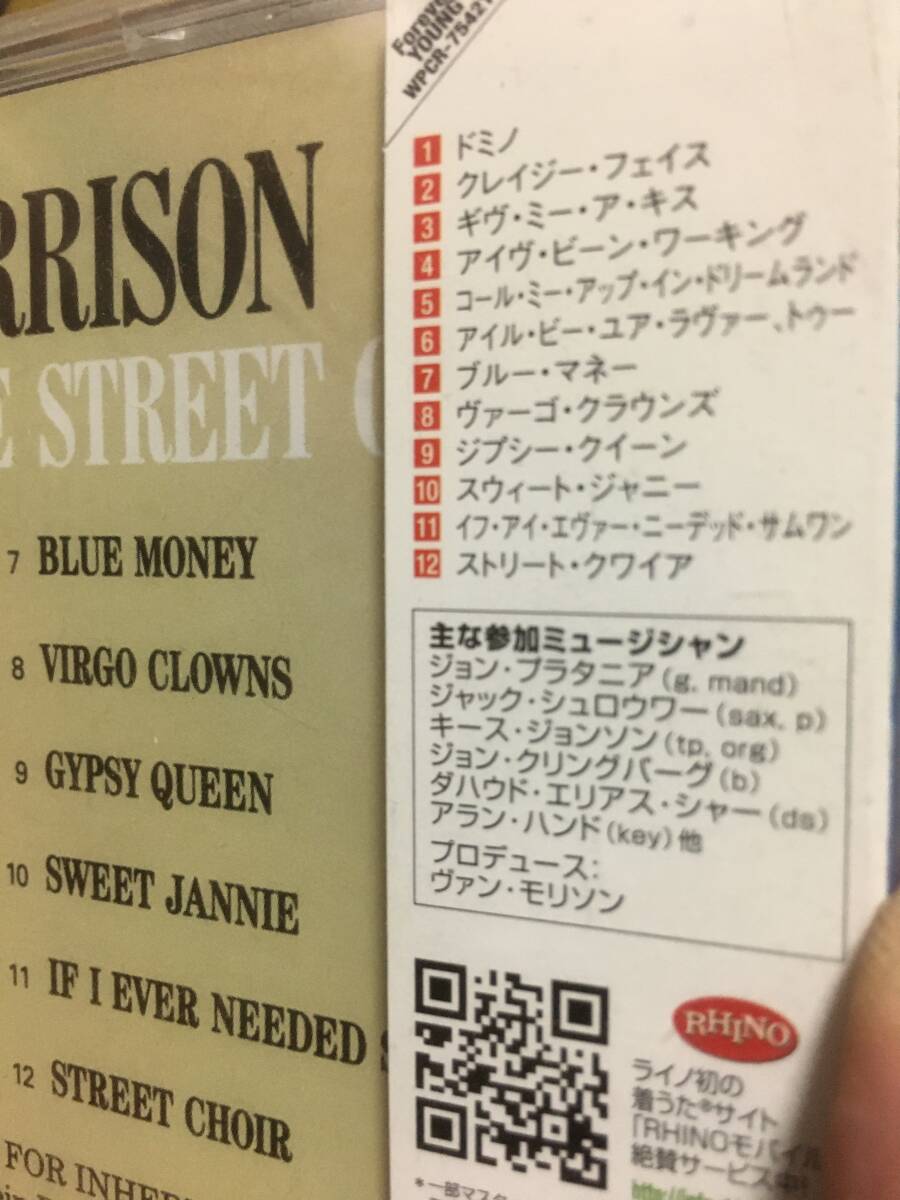 RRISON
STREET
7 BLUE MONEY
8 VIRGO CLOWNS
9 GYPSY QUEEN
10 SWEET JANNIE
11 IF I EVER NEEDED
12 STREET CHOIR
FOR INHER
Forever
YOUNG
WPCR-7542
1 ドミノ
2 クレイジー・フェイス
3 ギヴ・ミー・ア・キス
4 アイヴ・ビーン・ワーキング
5 コール・ミー・アップ・イン・ドリームランド
6 アイル・ビー・ユア・ラヴァー、トゥー
7 ブルー・マネー
8 ヴァーゴ・クラウンズ
9 ジプシー・クイーン
10 スウィート・ジャニー
11 イフ・アイ・エヴァー・ニーデッド・サムワン
12 ストリート・クワイア
主な参加ミュージシャン
ジョン・プラタニア(g, mand)
ジャック・シュロウワー(sax, p)
キース・ジョンソン(tp, org)
ジョン・クリングバーグ(b)
ダハウド・エリアス・シャー(ds)
アラン・ハンド(key)他
プロデュース:
ヴァン・モリソン
RHINO
ライノ初の
着うた®サイト
「RHINOモバイル
絶賛サービス中!
*一部マスタ